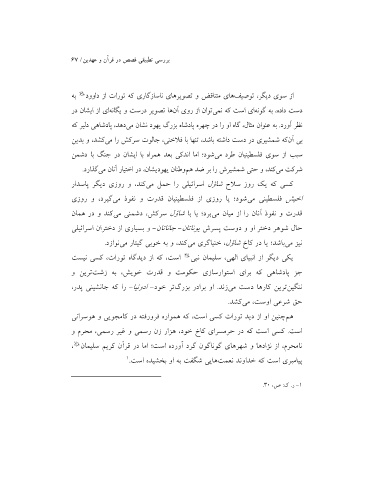 بررسی تطبیقی قصص در قرآن و عهدین / ۶۷
از سوی دیگر، توصیف‌های متناقض و تصویرهای ناسازگاری که تورات از داوود به
دست داده، به گونه‌ای است که نمی‌توان از روی آن‌ها تصویر درست و یگانه‌ای از ایشان در
نظر آورد. به عنوان مثال، گاه او را در چهره پادشاه بزرگ یهود نشان می‌دهد، پادشاهی دلیر که
بی آن‌که شمشیری در دست داشته باشد، تنها با فلاخنی، جالوت سرکش را می‌کشد، و بدین
سبب از سوی فلسطینیان طرد می‌شود؛ اما اندکی بعد همراه با ایشان در جنگ با دشمن
شرکت می‌کند، و حتی شمشیرش را بر ضد هم‌وطنان یهودیشان، در اختیار آنان می‌گذارد.
کسی که یک روز سلاح شاؤل اسرائیلی را حمل می‌کند، و روزی دیگر پاسدار
اخیش فلسطینی می‌شود؛ یا روزی از فلسطینیان قدرت و نفوذ می‌گیرد، و روزی
قدرت و نفوذ آنان را از میان می‌برد؛ یا با شاؤل سرکش، دشمنی می‌کند و در همان
حال شوهر دختر او و دوست پسرش یوناتان- جاناتان- و بسیاری از دختران اسرائیلی
نیز می‌باشد؛ یا در کاخ شاؤل، خنیاگری می‌کند، و به خوبی گیتار می‌نوازد.
یکی دیگر از انبیای الهی، سلیمان نبی است، که از دیدگاه تورات، کسی نیست
جز پادشاهی که برای استوارسازی حکومت و قدرت خویش، به زشت‌ترین و
ننگین‌ترین کارها دست می‌زند. او برادر بزرگ‌تر خود- ادونیا- را که جانشینی پدر،
حق شرعی اوست، می‌کشد.
هم‌چنین او از دید تورات کسی است، که همواره فرورفته در کامجویی و هوسرانی
است. کسی است که در حرمسرای کاخ خود، هزار زن رسمی و غیر رسمی، محرم و
نامحرم، از نژادها و شهرهای گوناگون گرد آورده است؛ اما در قرآن کریم سلیمان،
پیامبری است که خداوند نعمت‌هایی شگفت به او بخشیده است.۱
۱- ر. ک: ص، ۳۰.